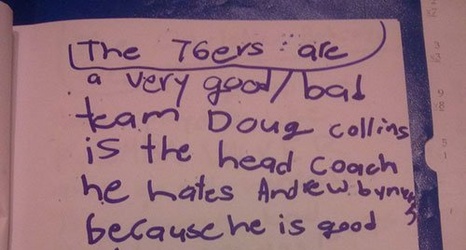 The 76ers : are
a very good/bad
team Doug collins
is the head coach
he hates Andrew
because he is good